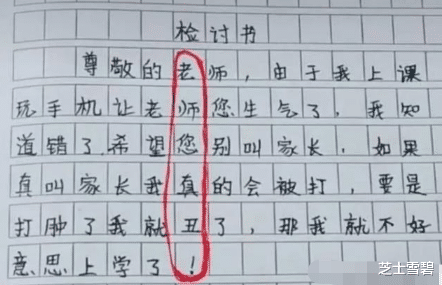 检讨书
尊敬的老师，由于我上课
玩手机让老师您生气了，我知
道错了.希望您别叫家长，如果
真叫家长我真的会被打，要是
打肿了我就丑了，那我就不好
意思上学了！
芝士雪碧